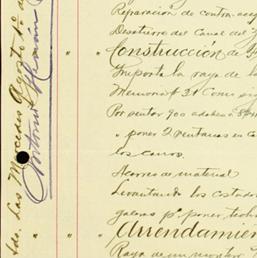 Reparación de contra-aceq
Desatierro del Canal del
Construcción de
Importa la raya de la
Memoria # 31 Como sig
Por pintar 900 adobes á
" poner 2 ventanas en ca
los cuartos.
Acarreo de material
Levantando los costados
galeras pa. poner techo
Arrendamien
Raya de un montero
Hda. Las Mercedes Agosto 1o. de
Antonio